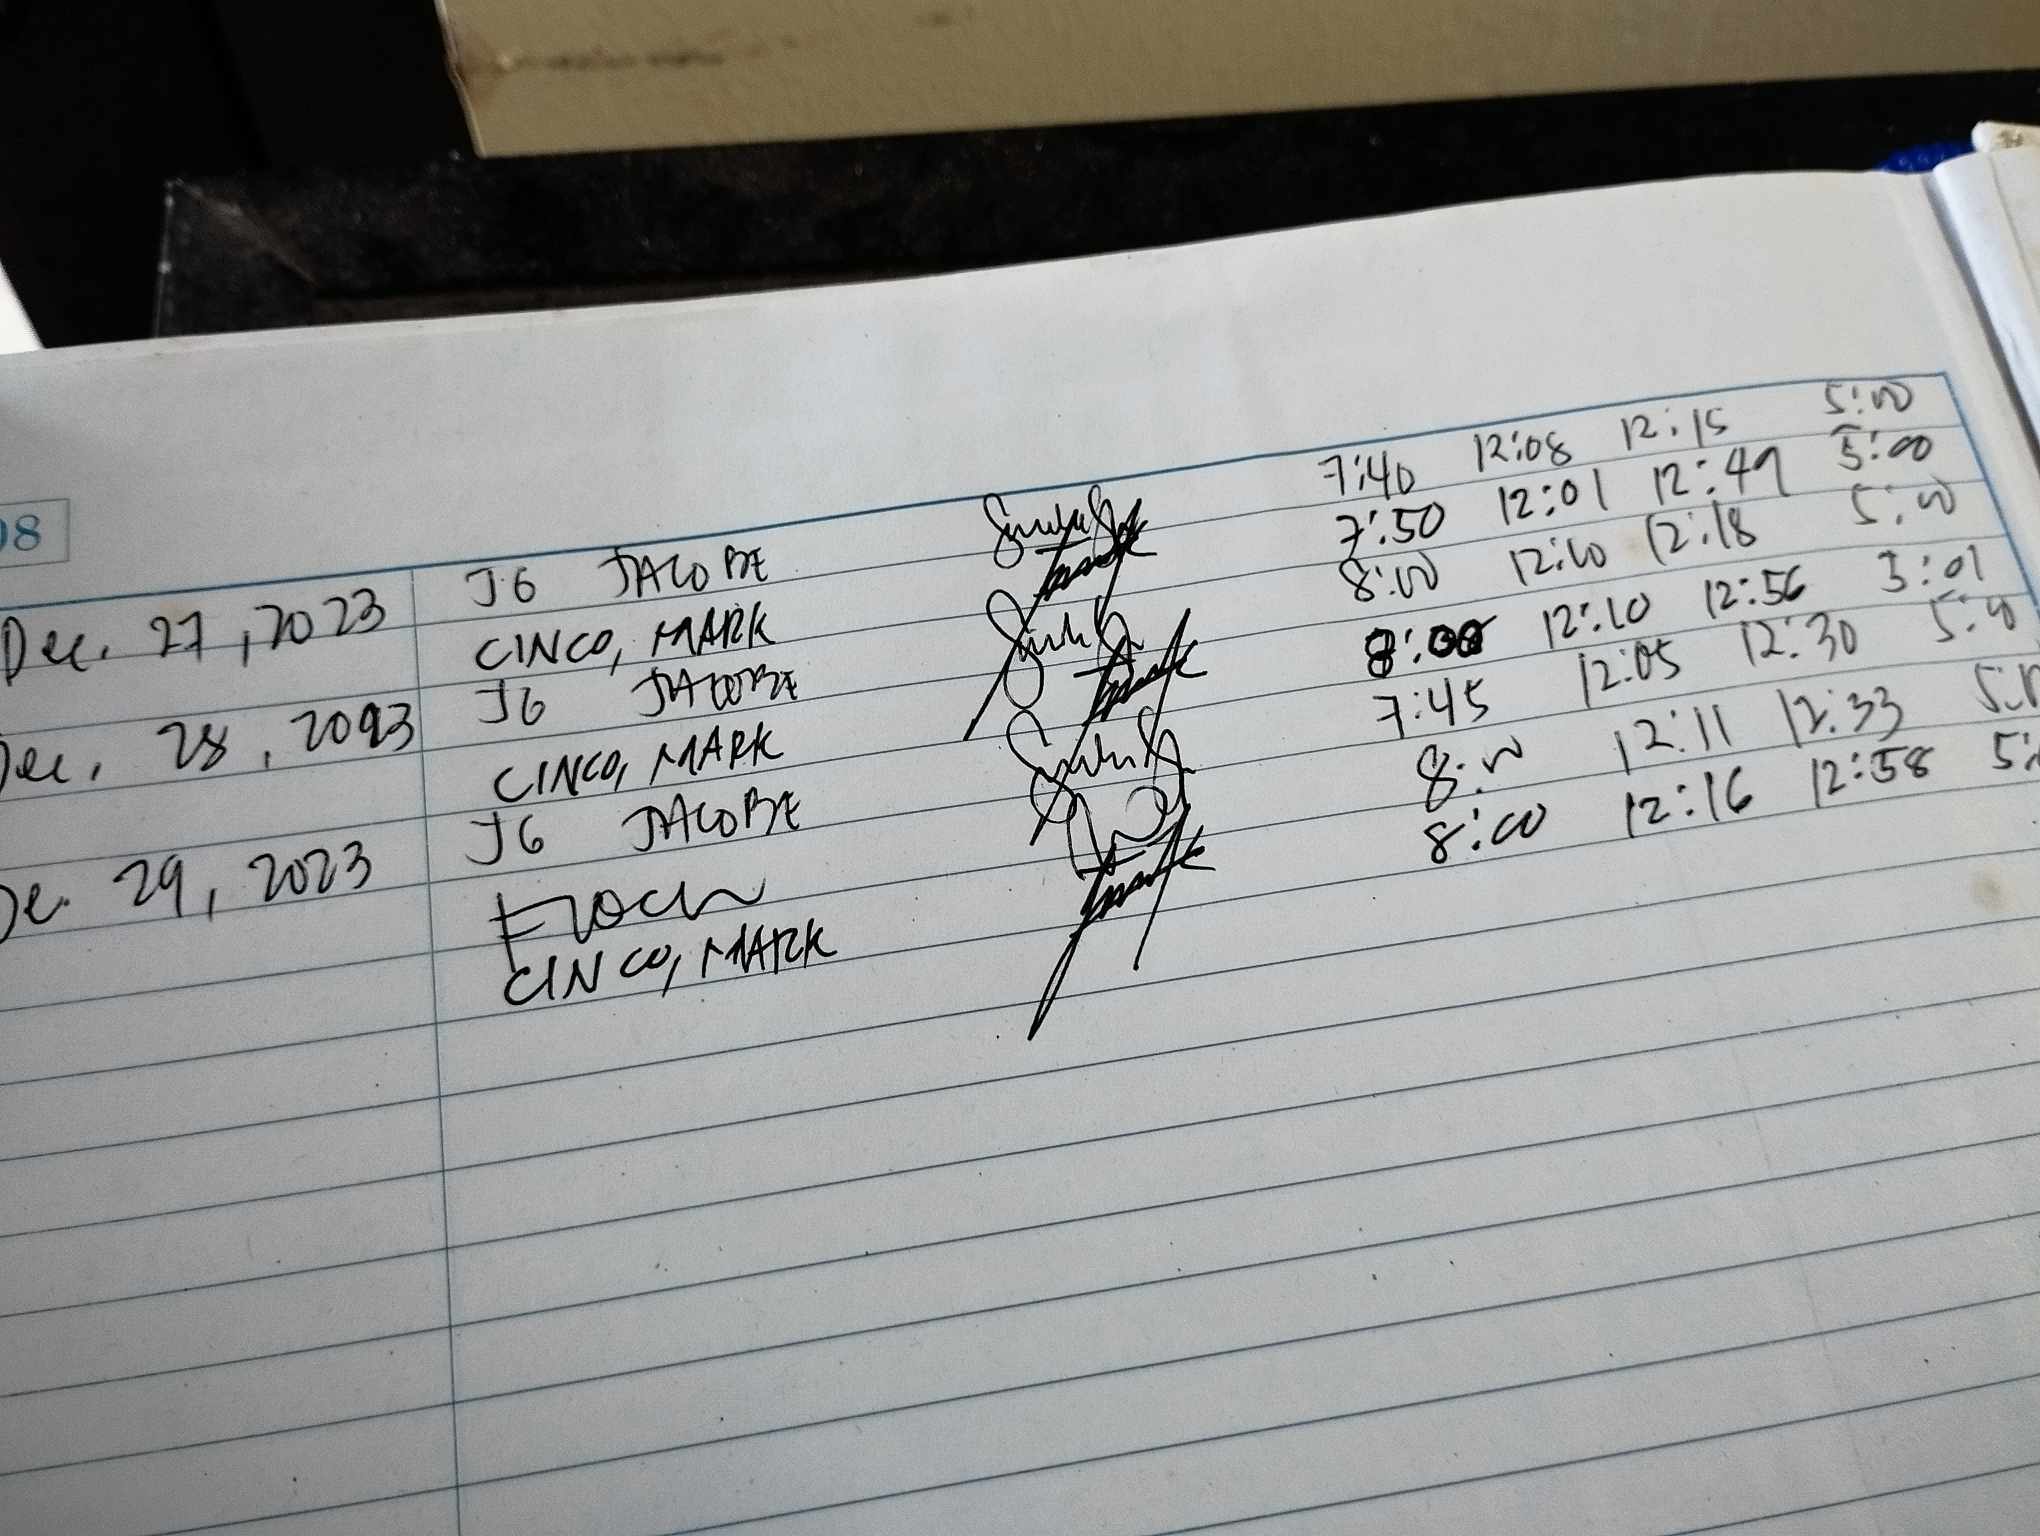 08
Dec. 27, 2023 JG JACOBE 7:40 12:08 12:15 5:00
CINCO, MARK 7:50 12:01 12:49 5:00
Dec. 28, 2023 JG JACOBE 8:00 12:10 12:18 5:00
CINCO, MARK 8:00 12:10 12:56 5:01
De. 29, 2023 JG JACOBE 7:45 12:05 12:30 5:0
8:00 12:11 12:33
CINCO, MARK 8:00 12:16 12:58